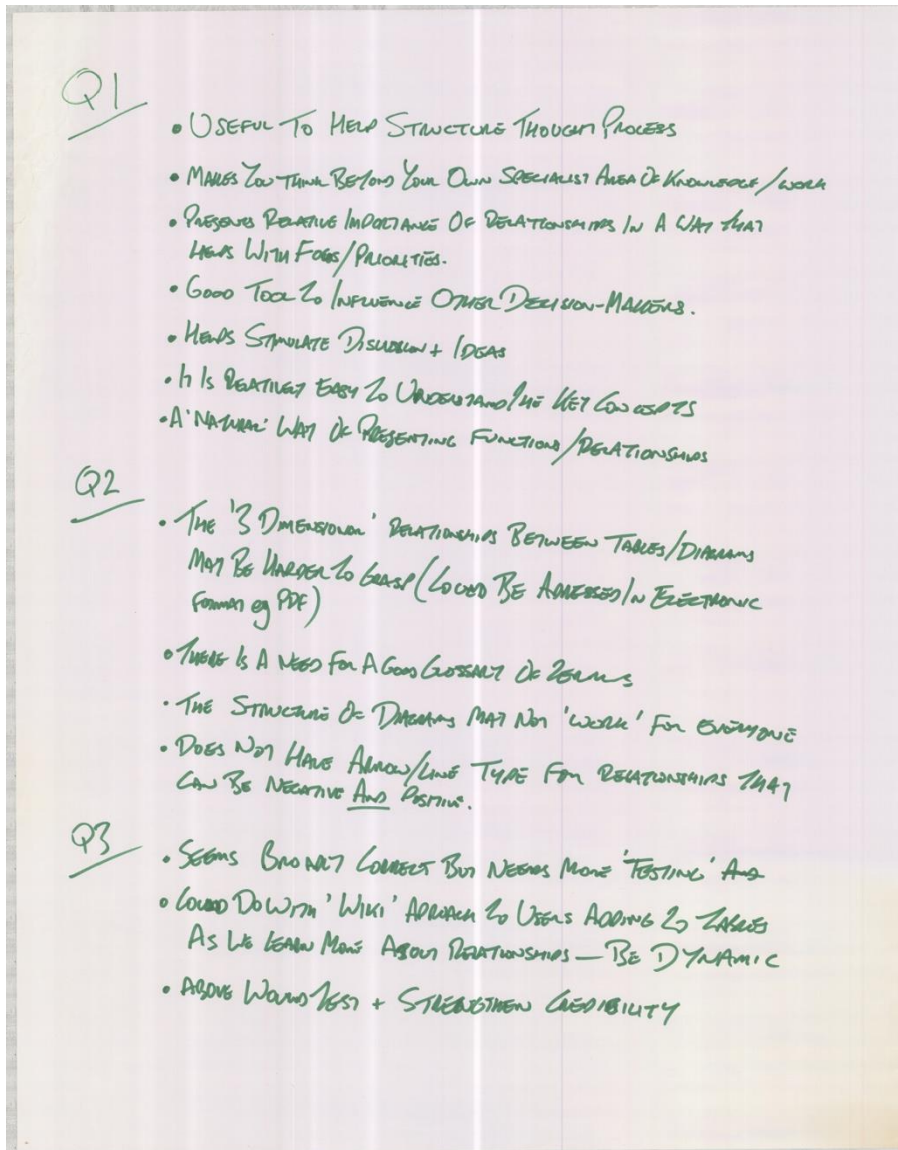 Q1
• USEFUL TO HELP STRUCTURE THOUGHT PROCESS
• MAKES YOU THINK BEYOND YOUR OWN SPECIALIST AREA OF KNOWLEDGE/WORK
• PRESENTS RELATIVE IMPORTANCE OF RELATIONSHIPS IN A WAY THAT
HELPS WITH FOCUS/PRIORITIES.
• GOOD TOOL TO INFLUENCE OTHER DECISION-MAKERS.
• HELPS STIMULATE DISCUSSION + IDEAS
• IT IS RELATIVELY EASY TO UNDERSTAND THE KEY CONCEPTS
• A 'NATURAL' WAY OF PRESENTING FUNCTIONS/RELATIONSHIPS
Q2
• THE '3 DIMENSIONAL' RELATIONSHIPS BETWEEN TABLES/DIAGRAMS
MAY BE HARDER TO GRASP (COULD BE ADRESSED IN ELECTRONIC
FORMAT eg PDF)
• THERE IS A NEED FOR A GOOD GLOSSARY OF TERMS
• THE STRUCTURE OF DIAGRAMS MAY NOT 'WORK' FOR EVERYONE
• DOES NOT HAVE ARROW/LINE TYPE FOR RELATIONSHIPS THAT
CAN BE NEGATIVE AND POSITIVE.
Q3
• SEEMS BROADLY CORRECT BUT NEEDS MORE 'TESTING' AND
• COULD DO WITH 'WIKI' APROACH TO USERS ADDING TO TABLES
AS WE LEARN MORE ABOUT RELATIONSHIPS — BE DYNAMIC
• ABOVE WOULD TEST + STRENGTHEN CREDIBILITY